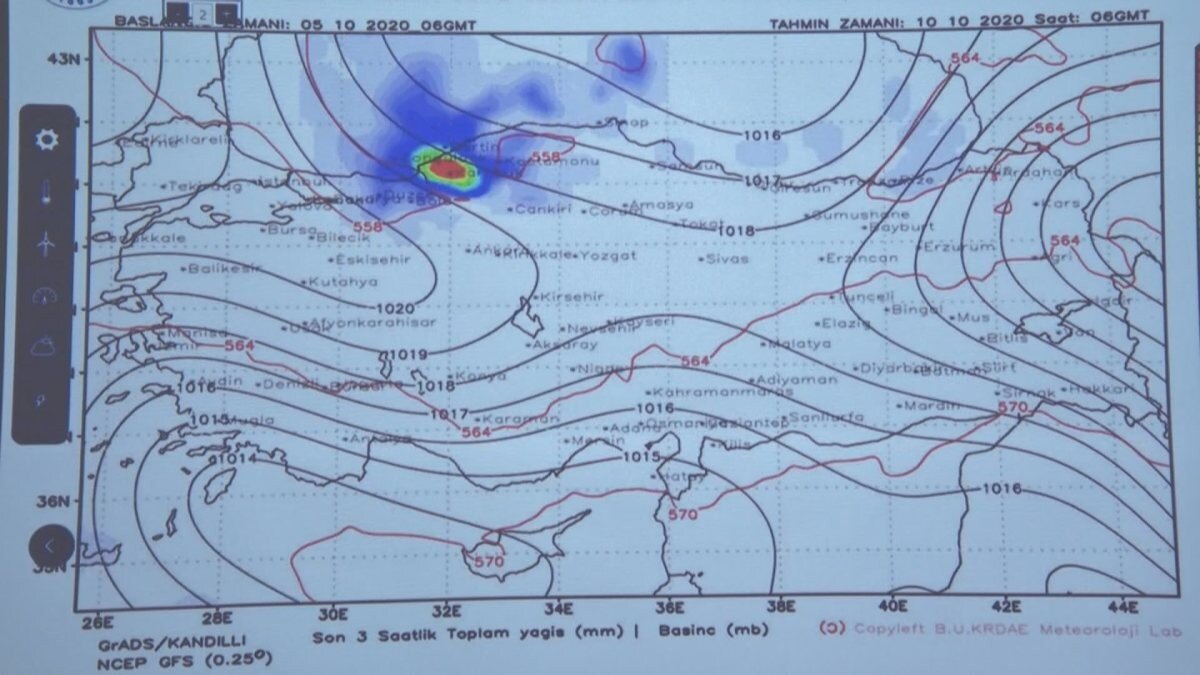 2
TAHMIN ZAMANI: 10 10 2020 Saat: 06GMT
ZAMANI: 05 10 2020 06GMT
43N
564
564
1016
558
Sinop
Kirklareli
Bartin
Kastamonu
Samsun
1017
Giresun
Rize
Artvin
Ardahan
Tekirdag
Istanbul
Duzce
Bolu
Yalova
Sakarya
Cankiri
Corum
Amasya
Gumushane
Kars
558
Tokat
1018
Bayburt
Bursa
Bilecik
564
Canakkale
Ankara
Kirikkale
Yozgat
Erzurum
Eskisehir
Sivas
Erzincan
Agri
Balikesir
Kutahya
Kirsehir
Tunceli
Igdir
1020
Bingol
Mus
Afyonkarahisar
Nevsehir
Kayseri
Elazig
Van
Manisa
Bitlis
564
Aksaray
Malatya
1019
564
Nigde
Diyarbakir
Batman
Siirt
Konya
Adiyaman
1016
Aydin
Denizli
Burdur
1018
Kahramanmaras
Sirnak
Hakkari
1017
1016
Mardin
570
1015
Mugla
Karaman
Sanliurfa
564
Adana
Osmaniye
Gaziantep
Antalya
Mersin
Kilis
1014
1015
Hatay
1016
36N
570
570
35N
26E
28E
30E
32E
34E
36E
38E
40E
42E
44E
GrADS/KANDILLI
Son 3 Saatlik Toplam yagis (mm) | Basinc (mb)
(ɔ) Copyleft B.U.KRDAE Meteoroloji Lab
NCEP GFS (0.25º)